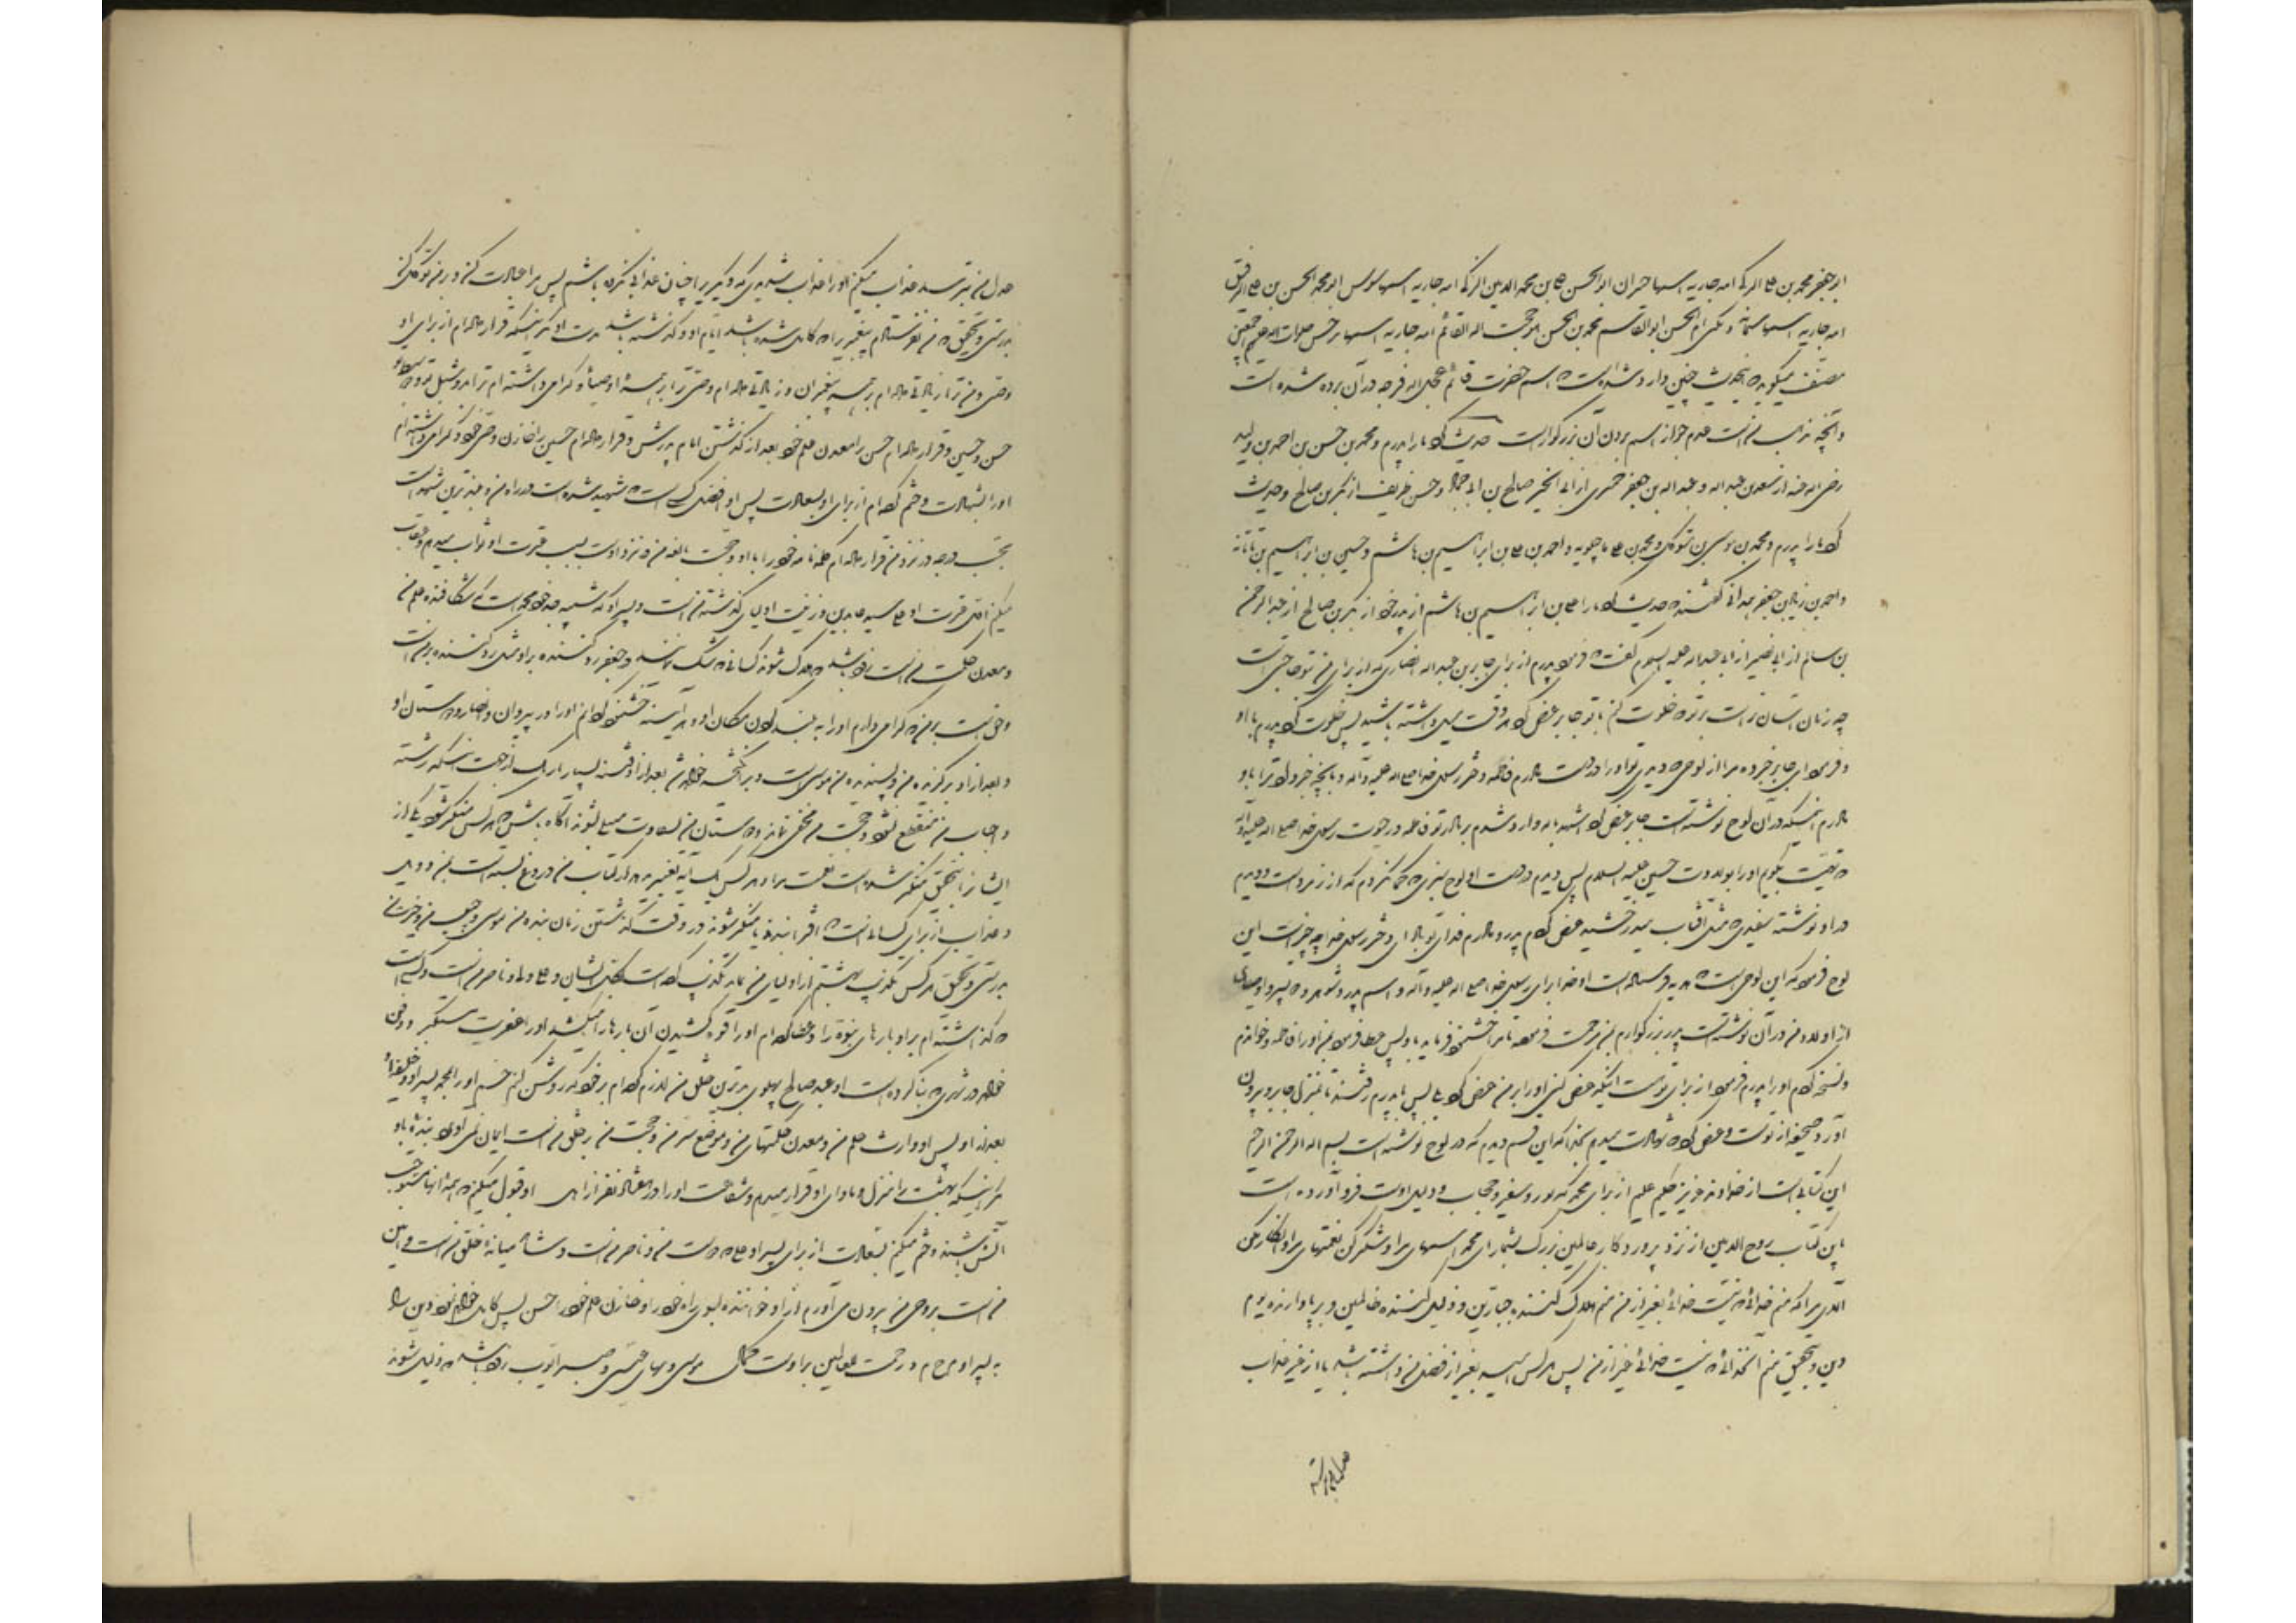 ابو جعفر محمد بن علی الزکی امه جاریه اسمها خیزران ابو الحسن علی بن محمد الامین الزکی امه جاریه اسمها سوسن ابو محمد الحسن بن علی الرفیق
امه جاریه اسمها سمانه و تکنی ام الحسن ابو القاسم محمد بن الحسن هو حجت اله القائم امه جاریه اسمها نرجس صلوات اله علیهم اجمعین
مصنف میگوید که اینحدیث چنین وارد شده است که اسم حضرت قائم عجل اله فرجه در آن برده شده است
و آنچه مذهب من است عدم جواز اسم بردن آن بزرگوار است حدیث کرد ما را پدرم و محمد بن حسن بن احمد بن ولید
رضی اله عنه از سعد بن عبد اله و عبد اله بن جعفر حمیری از ابی الخیر صالح بن ابی حماد و حسن بن ظریف از بکر بن صالح و حدیث
کرد ما را پدرم و محمد بن موسی بن متوکل و محمد بن علی ماجیلویه و احمد بن علی بن ابراهیم بن هاشم و حسین بن ابراهیم بن ناتانه
و احمد بن زیاد بن جعفر همدانی گفتند که حدیث کرد ما را علی بن ابراهیم بن هاشم از پدر خود از بکر بن صالح از عبد الرحمن
بن سالم از ابی نصیر از ابی عبد اله علیه السلام گفت که فرمود پدرم از برای جابر بن عبد اله انصاری که از برای من بتو حاجتی است
چه زمان آسان تر است بر تو که خلوت کنم با تو جابر عرض کرد هر وقت میل داشته باشید پس خلوت کرد پدرم با او
و فرمود ای جابر خبر ده مرا از لوحی که دیدی تو او را در دست مادرم فاطمه دختر رسول خدا صلی اله علیه و آله و بآنچه خبر داد ترا باو
مادرم اینکه در آن لوح نوشته است جابر عرض کرد اشهد باله وارد شدم بر مادر تو فاطمه در حیوت رسول خدا صلی اله علیه و آله
که تهنیت بگویم او را بولادت حسین علیه السلام پس دیدم در دست او لوح سبزی که گمان کردم که از زمرد است و دیدم
در او نوشته سفیدی که مثل آفتاب میدرخشید عرض کردم پدر و مادرم فدای تو باد ای دختر رسول خدا چه چیز است این
لوح فرمود که این لوحی است که هدیه فرستاده است او را خدا برای رسول خدا صلی اله علیه و آله و اسم پدر و شوهر و دو پسر و اوصیای
از اولاد من در آن نوشته است پدر بزرگوارم بمن مرحمت فرموده تا مرا خوشنود فرماید باو پس عطا فرمود بمن او را فاطمه و خواندم
و نسخه کردم او را پدرم فرمود از برای تو است اینکه عرض کنی او را بر من عرض کرد بلی پس با پدرم رفتند تا بمنزل جابر و بیرون
آورد صحیفه از پوست و عرض کرد که شهادت میدهم بخدا که این قسم دیدم که در لوح نوشته است بسم اله الرحمن الرحیم
این کتابی است از خداوند عزیز حکیم علیم از برای محمد که نور و سفیر و حجاب و دلیل اوست فرود آورده است
این کتاب روح الامین از نزد پروردگار عالمین بزرگ بشمار ای محمد اسمهای مرا و شکر کن نعمتهای مرا و انکار مکن
آلای مرا که منم خدائی که نیست خدائی بغیر از من منم هلاک کننده جبارین و ذلیل کننده ظالمین و برپا دارنده یوم
دین و بتحقیق منم آنخدائی که نیست خدائی غیر از من پس هر کس امید بغیر از فضل من داشته باشد یا از غیر عذاب
عدل من بترسد عذاب میکنم او را عذاب شدیدی که دیگری را چنان عذابی نکرده باشم پس مرا عبادت کن و بر من توکل کن
بدرستی و بتحقیق که من نفرستادم پیغمبری را که کامل شده باشد ایام او و گذشته باشد مدت او مگر اینکه قرار داده ام از برای او
وصی و من ترا زیادتی داده ام بر همه پیغمبران و زیادتی داده ام وصی ترا بر همه اوصیاء و گرامی داشته ام ترا بدو شبل تو و دو سبط تو
حسن و حسین و قرار داده ام حسن را معدن علم خود بعد از گذشتن ایام پدرش و قرار داده ام حسین را خازن وحی خود و گرامی داشته ام
او را بشهادت و ختم کرده ام از برای او بسعادت پس او افضل کسی است که شهید شده است در راه من و بلند ترین شهداست
بحسب درجه در نزد من قرار داده ام کلمه تامه خود را با او و حجت بالغه من در نزد اوست بسبب عترت او ثواب میدهم و عقاب
میکنم اول عترت او علی سید عابدین و زینت اولیای گذشته من است و پسر او که شبیه جد خود محمد است که شکافنده علم من
و معدن حکمت من است زود باشد که هلاک شوند کسانی که شک نمایند در جعفر رد کننده بر او مثل رد کننده بر من است
و حق است بر من که گرامی دارم او را به بلند کردن مکان او و هر آینه خوشنود گردانم او را در پیروان و انصار و دوستان او
و بعد از او برگزیده من و پسندیده من موسی است و برانگیخته خواهد شد بعد از او فتنه بسیار تاریک از جهت اینکه رشته
و اجاب من منقطع نشود و حجت من مخفی نماند و دوستان من بشقاوت مبتلی نشوند آگاه باشید که هر کس منکر شود یکی از
ایشان را بتحقیق منکر شده است نعمت مرا و هر کس یک آیه تغییر دهد از کتاب من دروغ بسته است بمن و ویل
و عذاب از برای کسانی است که افترا ببندند یا منکر شوند در وقت گذشتن زمان بنده من موسی و حبیب من و خیرت من
بدرستی و بتحقیق هر کس تکذیب هشتم از اولیای من نماید تکذیب کرده است بکل ایشان و علی ولی و ناصر من است و کسی است
که گذاشته ام بر او بارهای نبوة را و عطا کرده ام او را قوه کشیدن آن بارها را میکشد او را عفریت متکبر و دفن
خواهد شد در شهری که بنا کرده است او عبد صالح پهلوی بدترین خلق من لازم کرده ام بر خود که روشن کنم چشم او را بمحمد پسر او و خلیفه او
بعد از او پس او وارث علم من و معدن حکمتهای من و موضع سر من و حجت من بر خلق من است ایمان نمی آورد بنده باو
مگر اینکه بهشت را منزل و ماوای او قرار میدهم و شفاعت او را در هفتاد نفر از اهل او قبول میکنم که همه آنها مستوجب
آتش باشند و ختم میکنم بسعادت از برای پسر او علی که دوست من و ناصر من است و شاهد میانه خلق من است و امین
من است بر وحی من بیرون می آورم از او خواننده بسوی راه خود را و خازن علم خود را حسن پس کامل خواهم نمود دین را
به پسر او م ح م د رحمت عالمین بر اوست کمال موسی و بهای عیسی و صبر ایوب زود باشد که ذلیل شوند